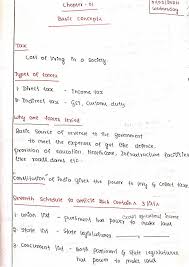 Chapter - 01
Wednesday
Basic concepts
Tax
Cost of living in a society.
Types of taxes
1. Direct tax - Income tax
2. Indirect tax - GST, customs duty
Why are taxes levied
Basic source of revenue to the government
to meet the expenses of govt like defence,
provision of education, Healthcare, Infrastructure facilities
like roads, dams etc.
Constitution of India gives the power to levy & collect taxes.
Seventh Schedule to article 246 contains 3 lists
1. Union list - parliament has power to make laws
2. State list - State legislatures
3. Concurrent list - Both parliament & State legislatures
has power to make laws